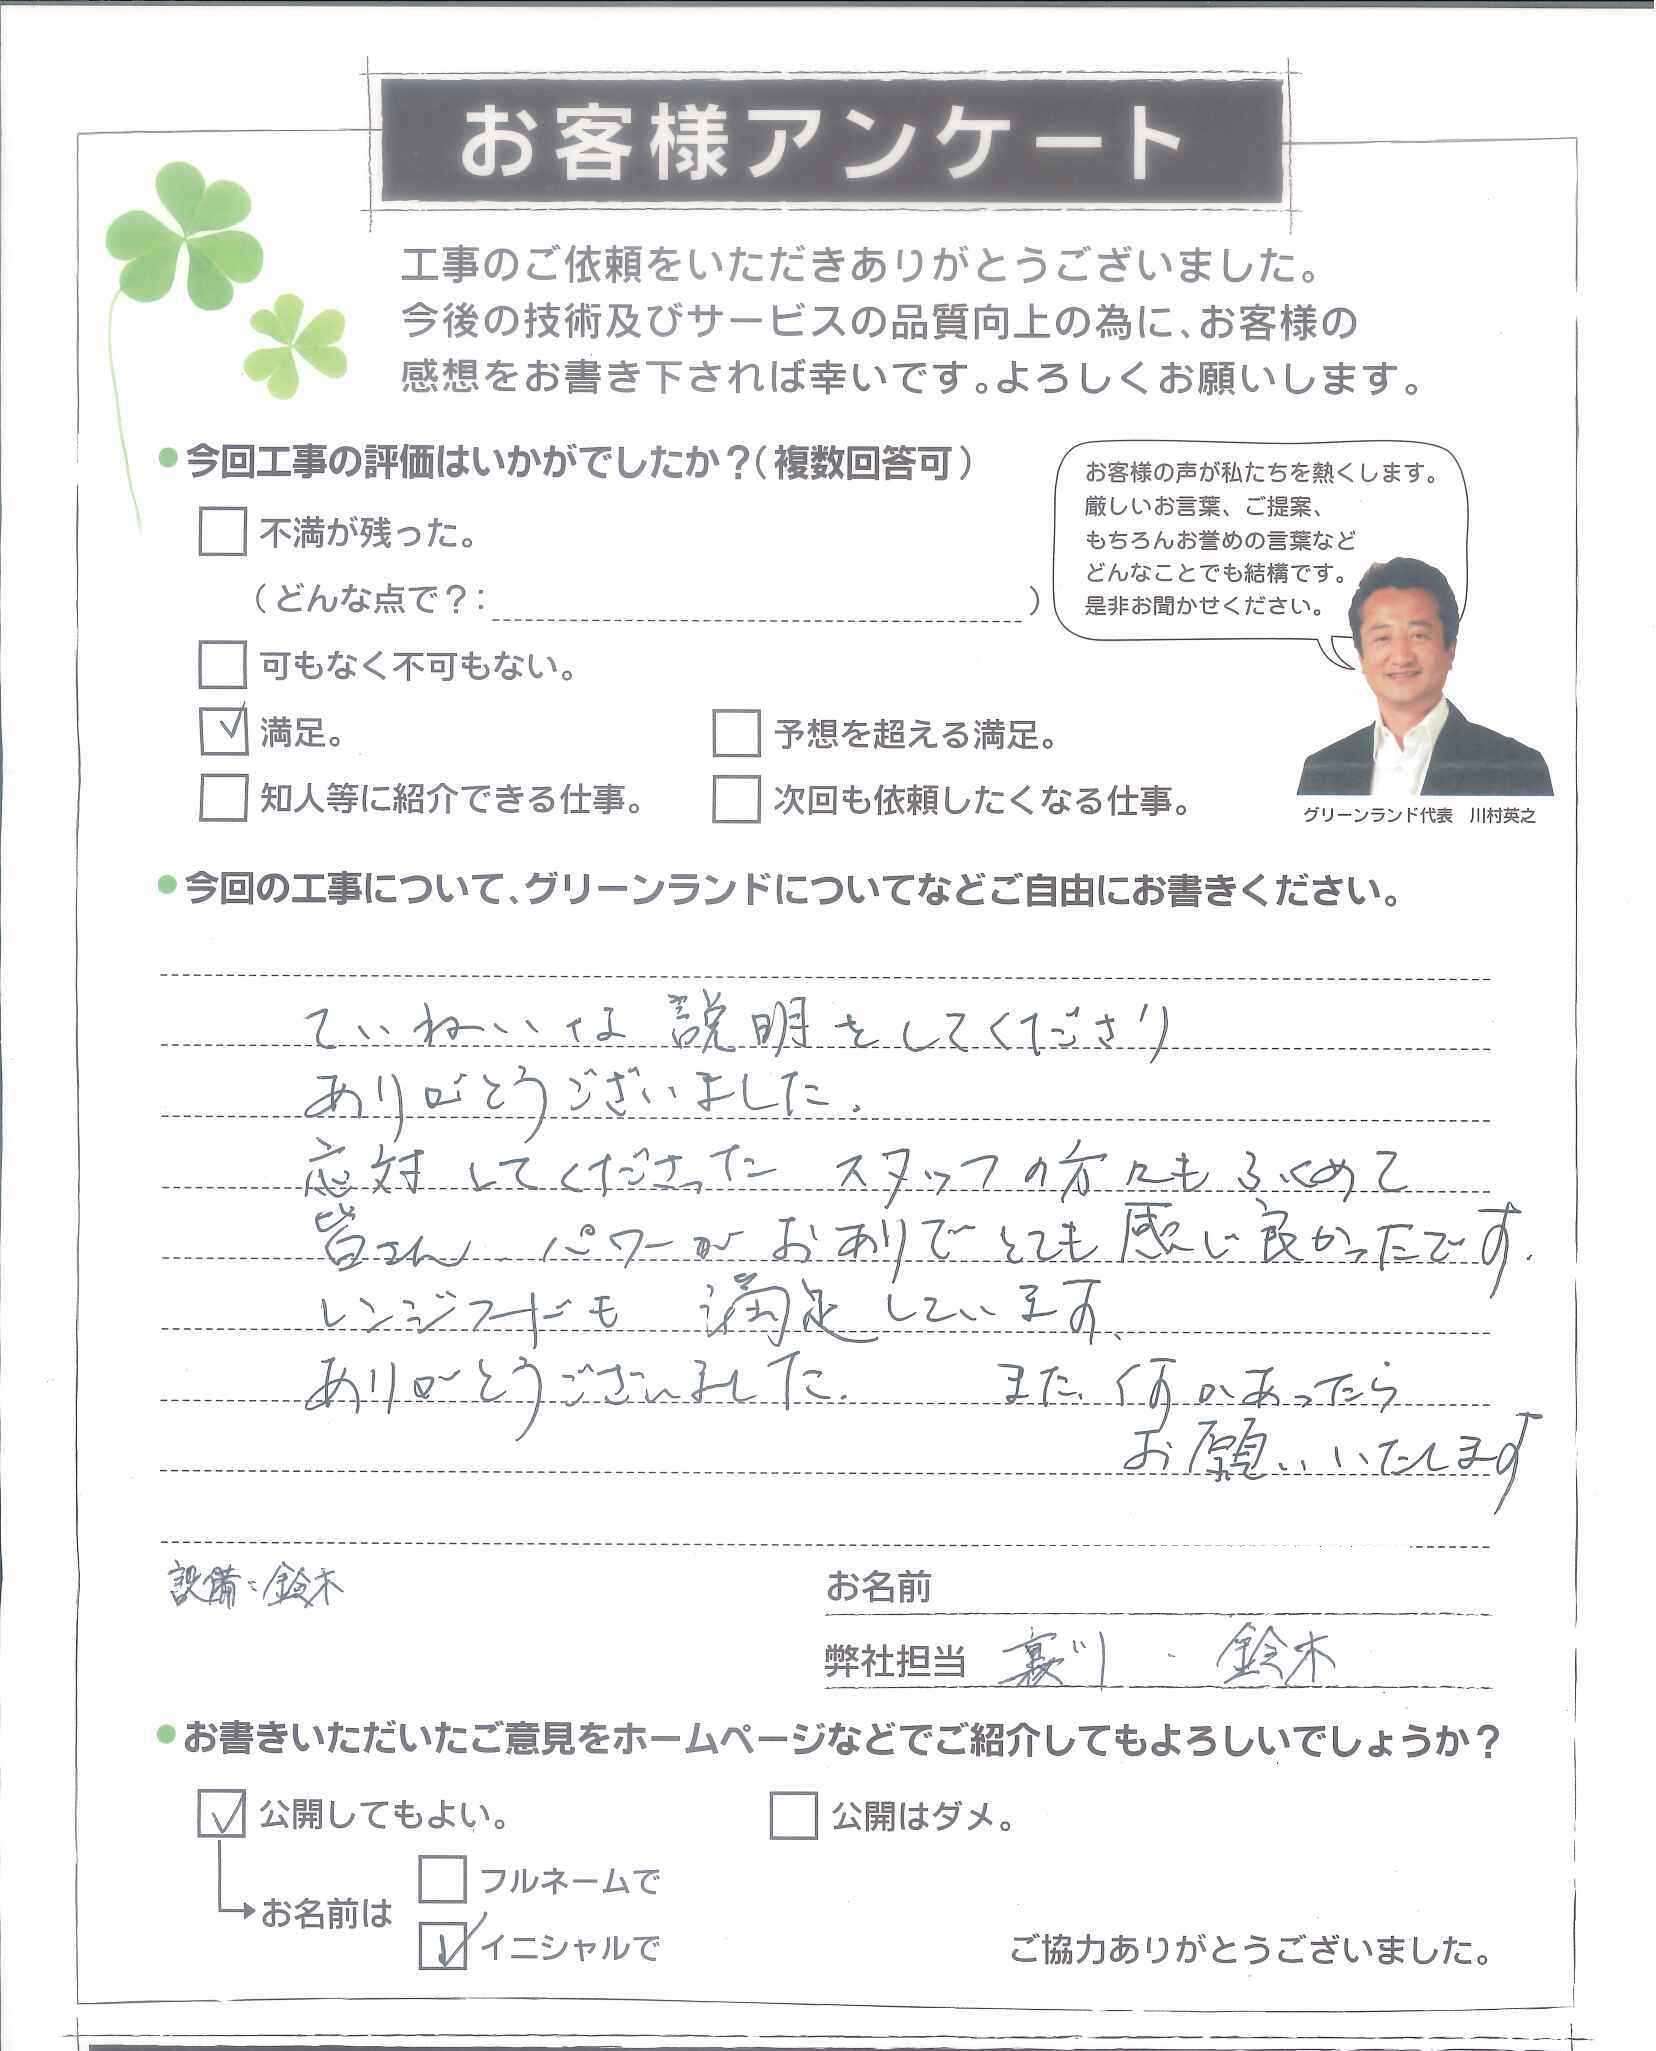 お客様アンケート
工事のご依頼をいただきありがとうございました。
今後の技術及びサービスの品質向上の為に、お客様の
感想をお書き下されば幸いです。よろしくお願いします。
●今回工事の評価はいかがでしたか？（複数回答可）
不満が残った。
（どんな点で？： ）
可もなく不可もない。
満足。
予想を超える満足。
知人等に紹介できる仕事。
次回も依頼したくなる仕事。
お客様の声が私たちを熱くします。
厳しいお言葉、ご提案、
もちろんお誉めの言葉など
どんなことでも結構です。
是非お聞かせください。
グリーンランド代表 川村英之
●今回の工事について、グリーンランドについてなどご自由にお書きください。
ていねいな説明をしてくださり
ありがとうございました。
応対してくださった スタッフの方々もふくめて
皆さん パワーがおありでとても感じ良かったです。
レンジフードも 満足しています。
ありがとうございました。 また、何かあったら
お願いいたします
設備：鈴木
お名前
弊社担当 ・ 鈴木
●お書きいただいたご意見をホームページなどでご紹介してもよろしいでしょうか？
公開してもよい。
公開はダメ。
お名前は
フルネームで
イニシャルで
ご協力ありがとうございました。